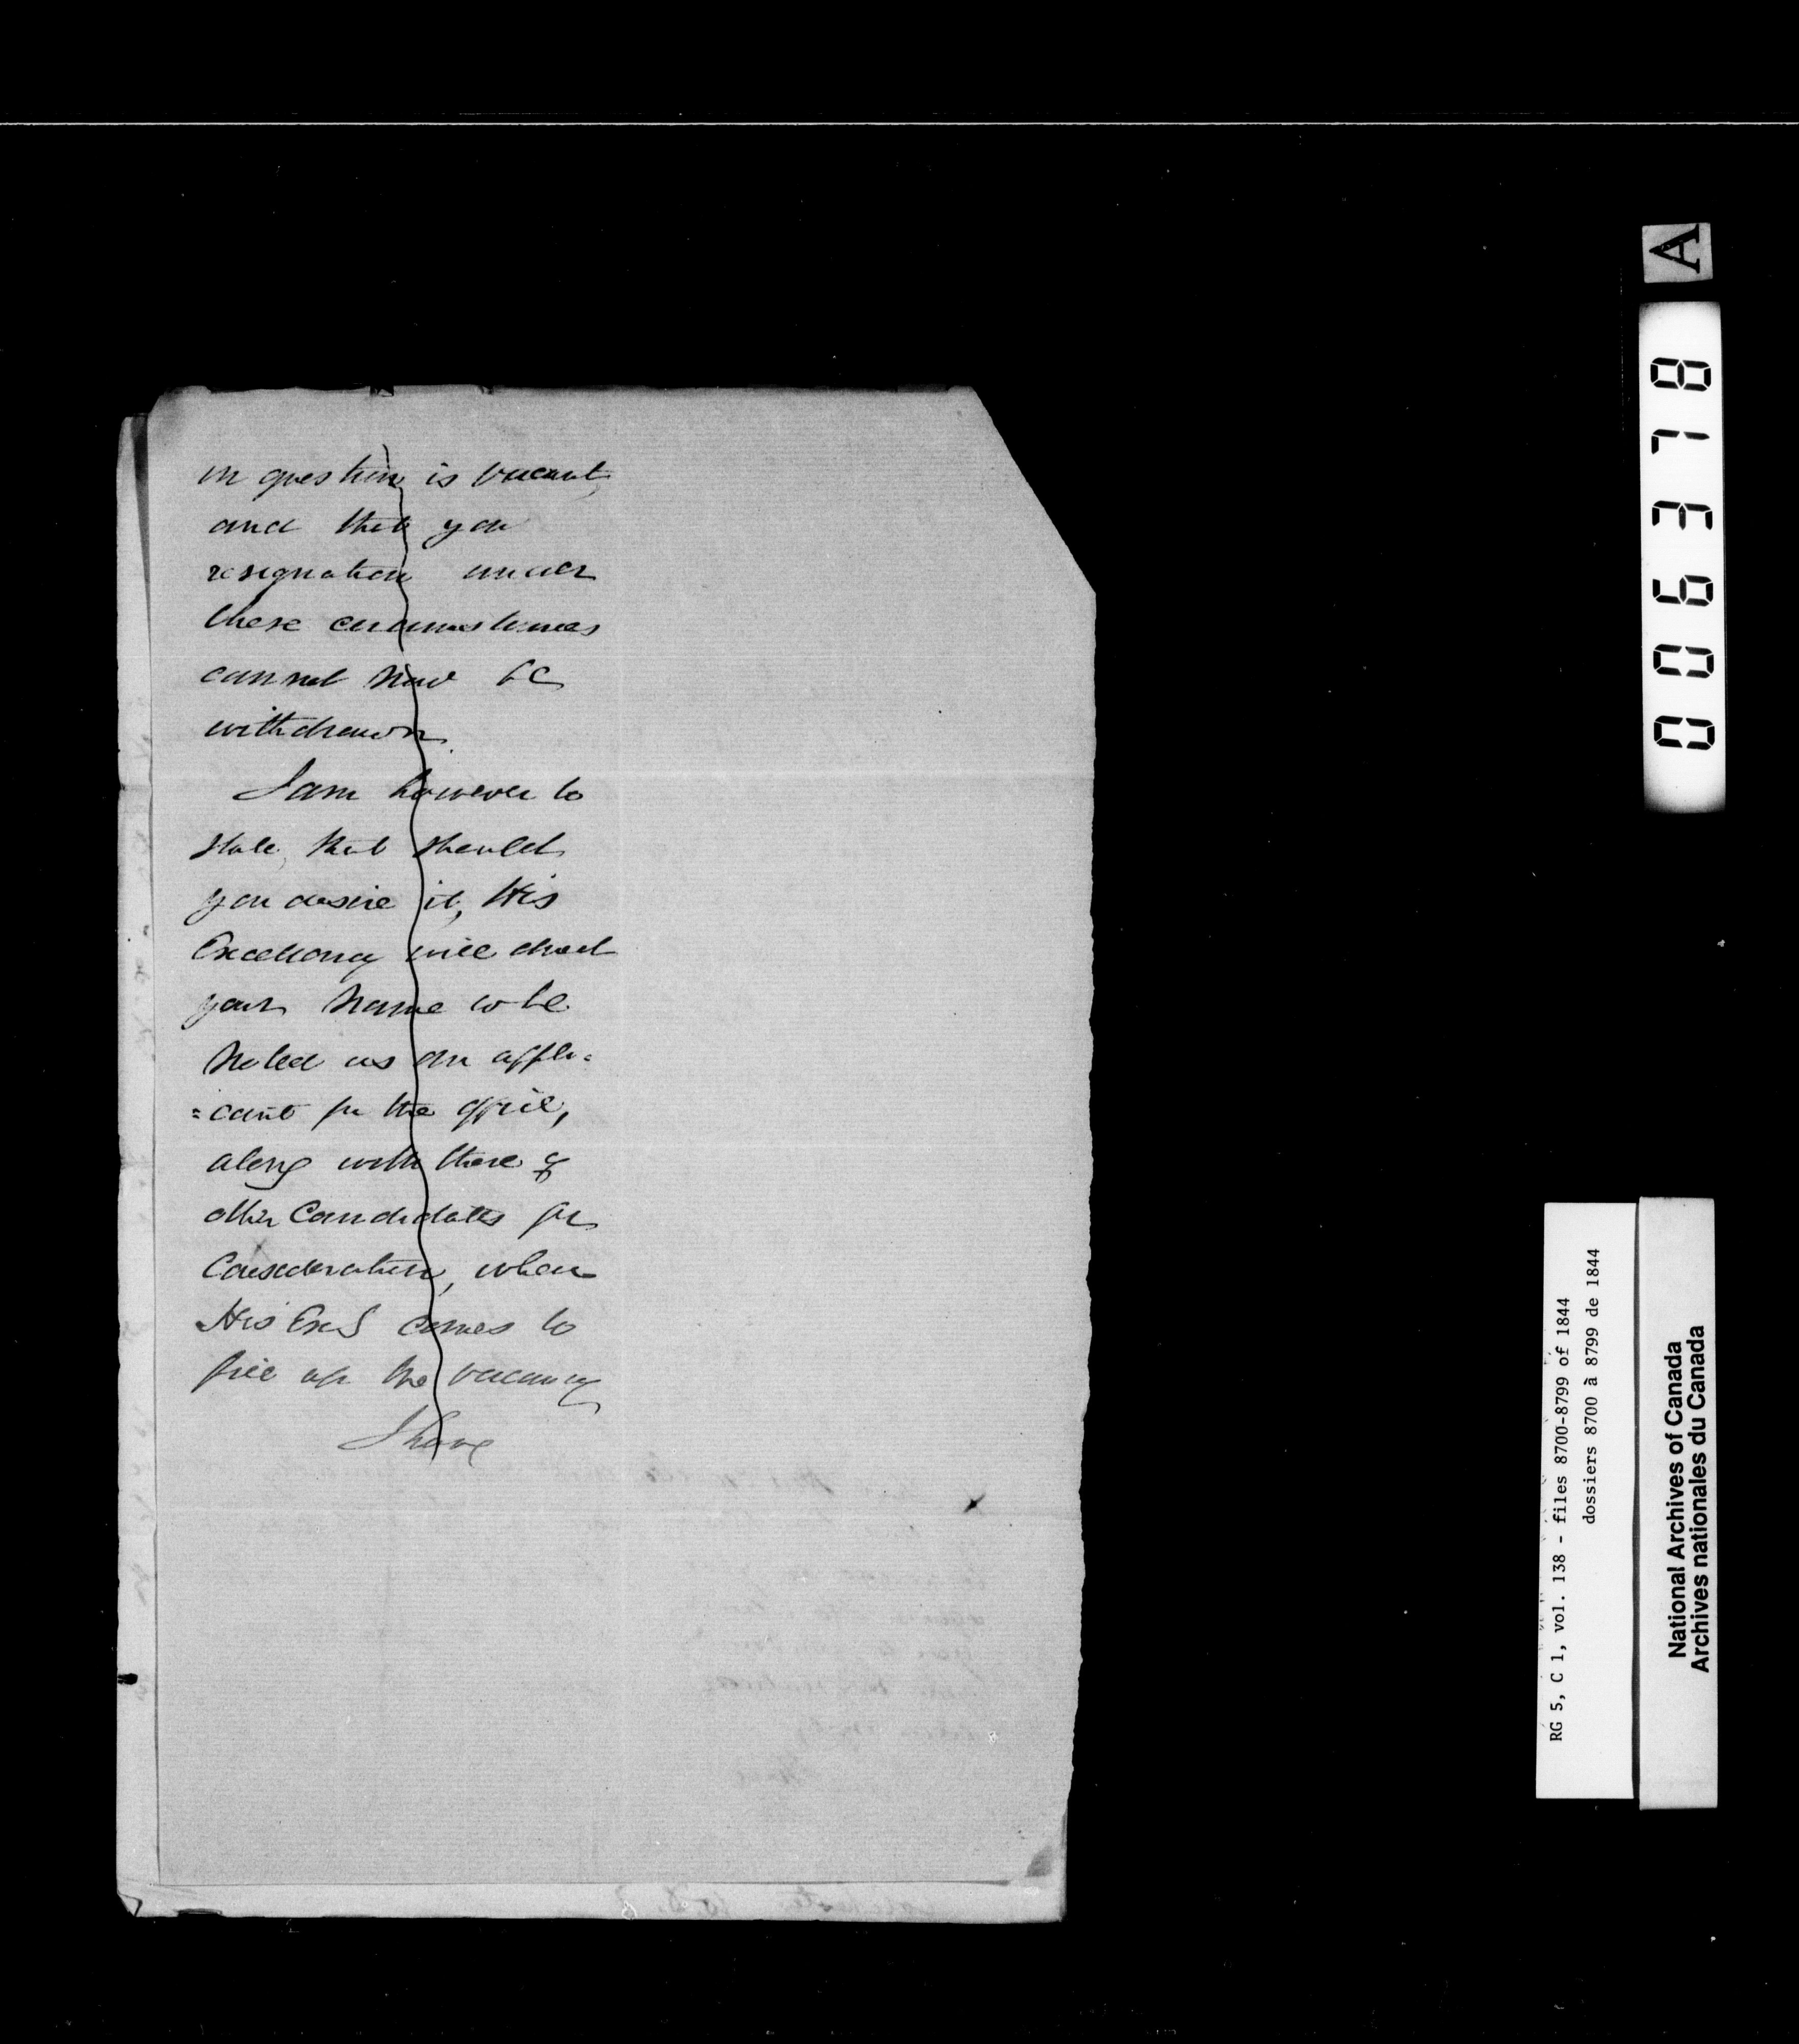 in question is vacant,
and that you
resignation under
these circumstances
cannot now be
withdrawn.
I am however to
state, that should
you desire it, His
Excellency will direct
your name to be
noted as an appli=
=cant for the office,
along with those of
other Candidates for
Consideration, when
His Exc^y comes to
fill up the vacancy
I have
A
006378
RG 5, C 1, vol. 138 - files 8700-8799 of 1844
dossiers 8700 à 8799 de 1844
National Archives of Canada
Archives nationales du Canada